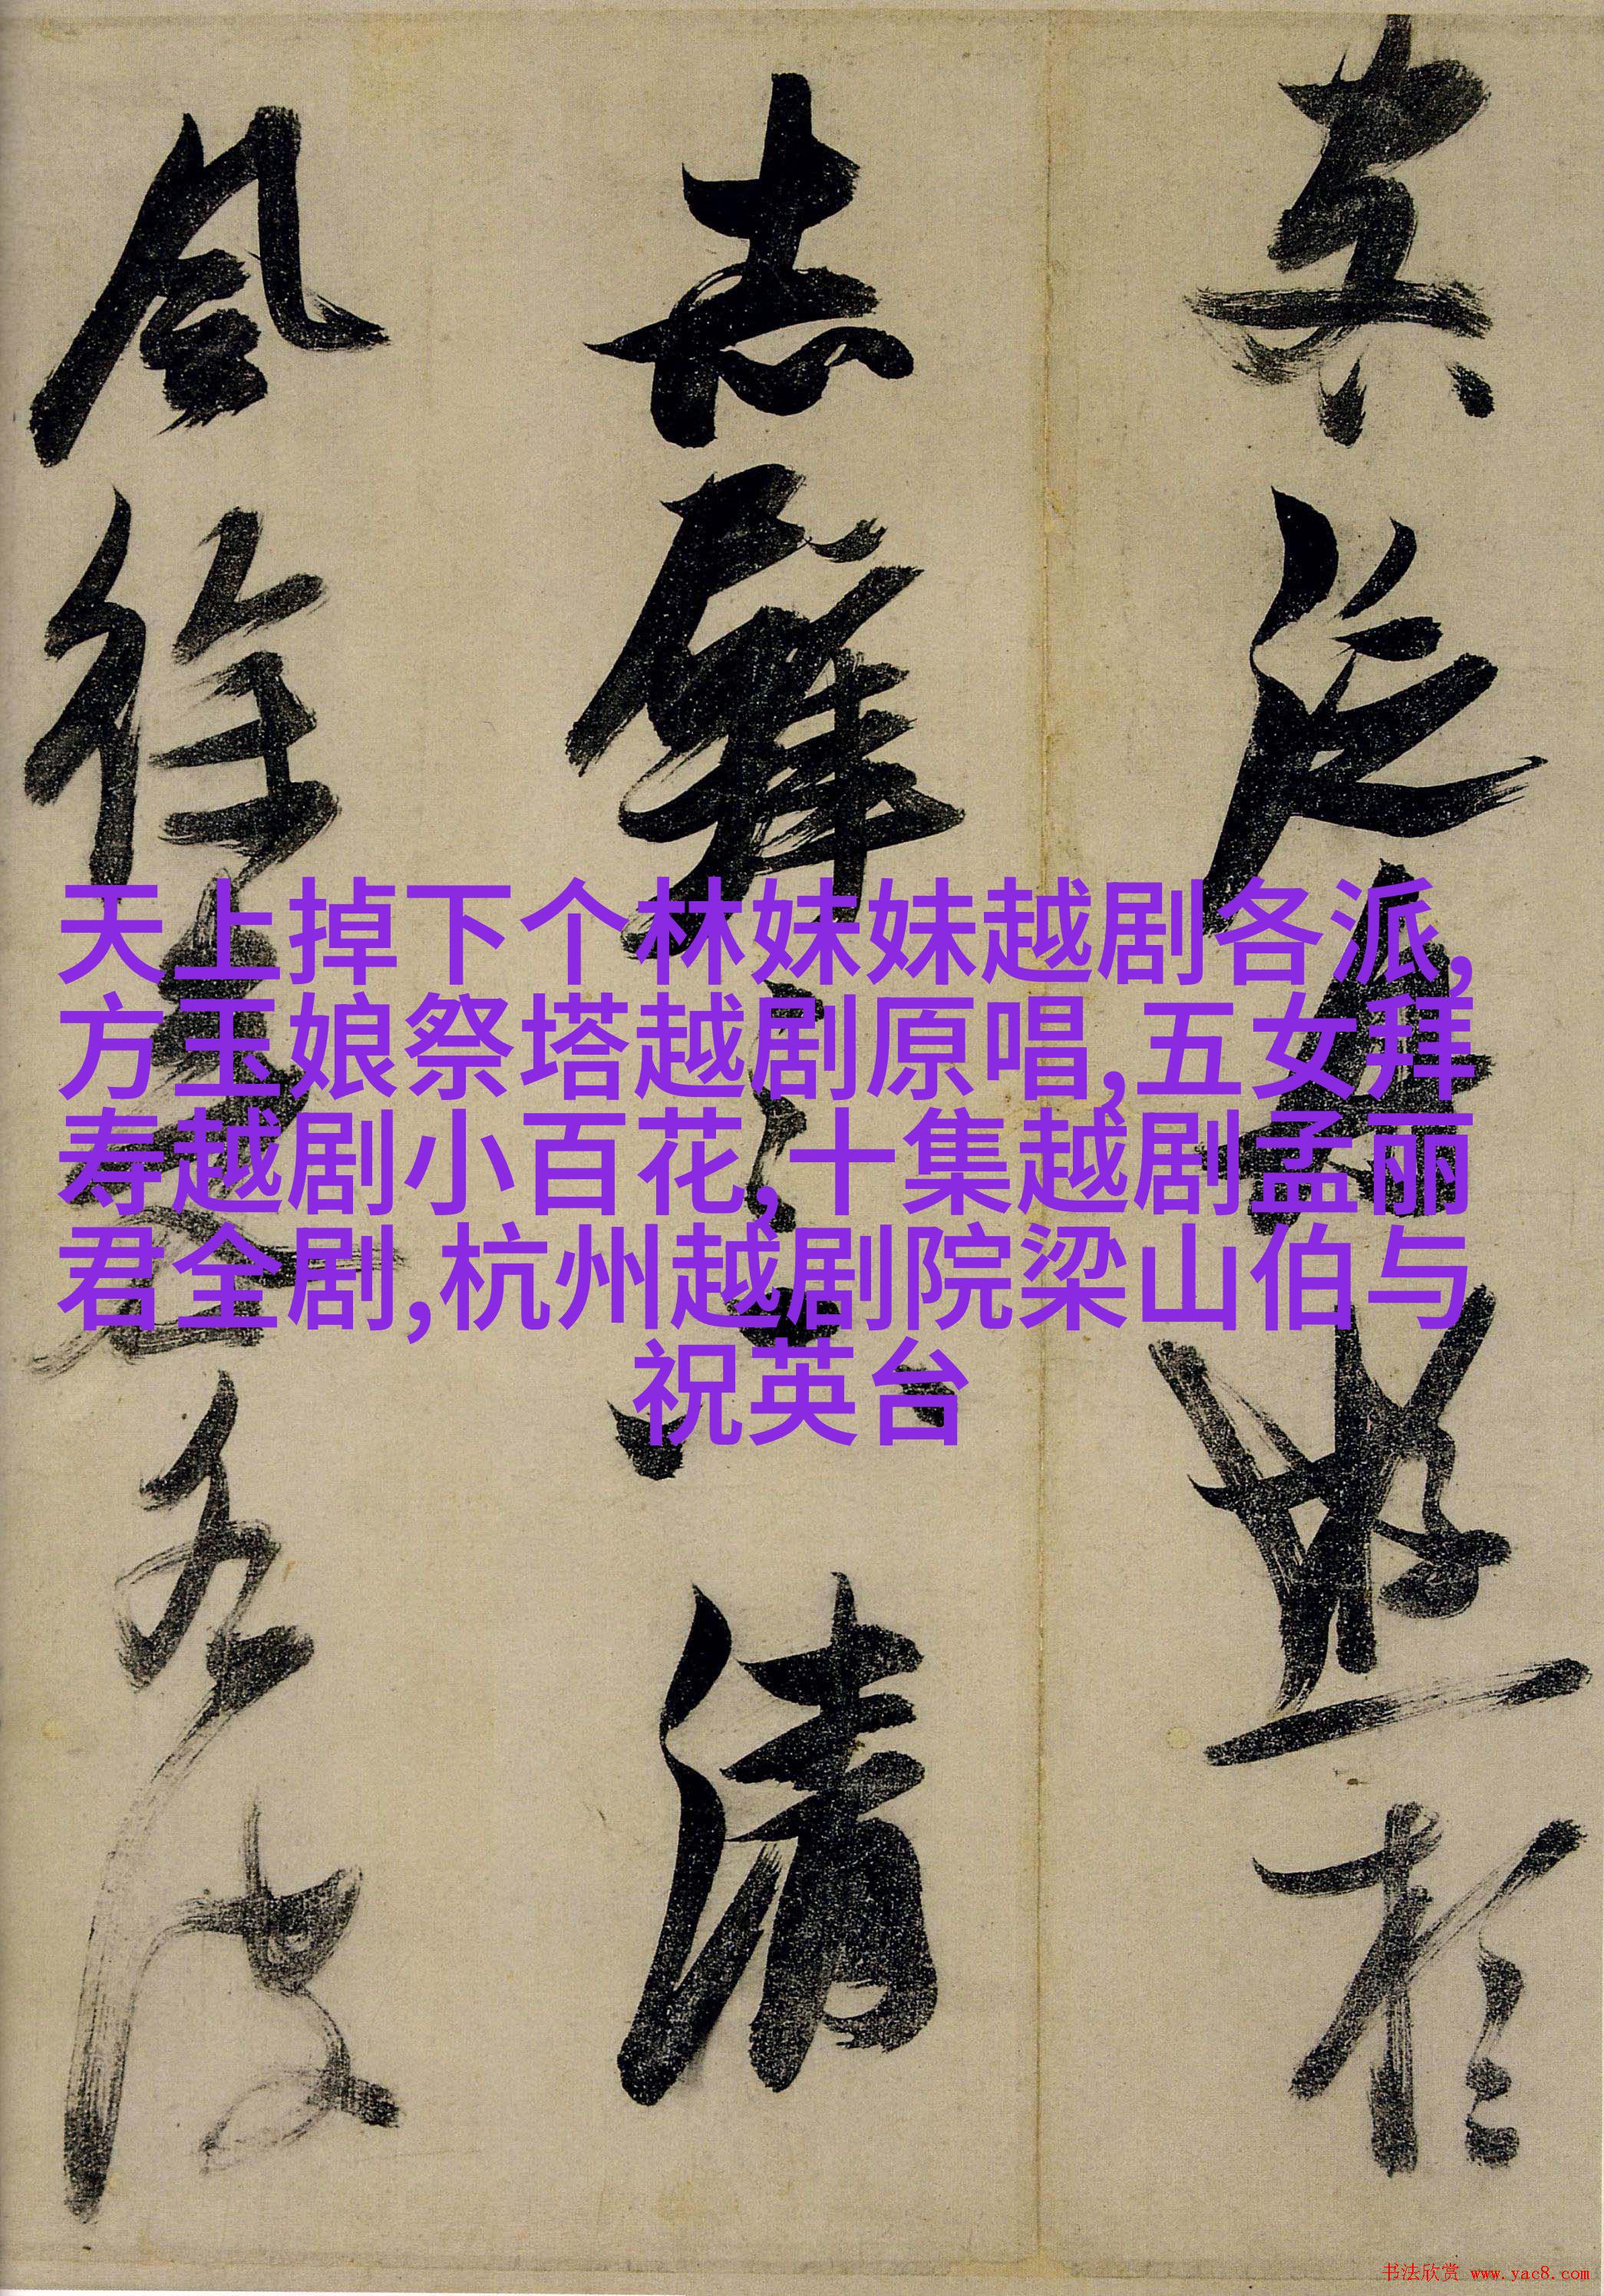 天上掉下个林妹妹越剧各派,
方玉娘祭塔越剧原唱,五女拜
寿越剧小百花,十集越剧孟丽
君全剧,杭州越剧院梁山伯与
祝英台
泛舟遊於
赤壁之下清
風徐来水波
书法欣赏 www.yac8.com